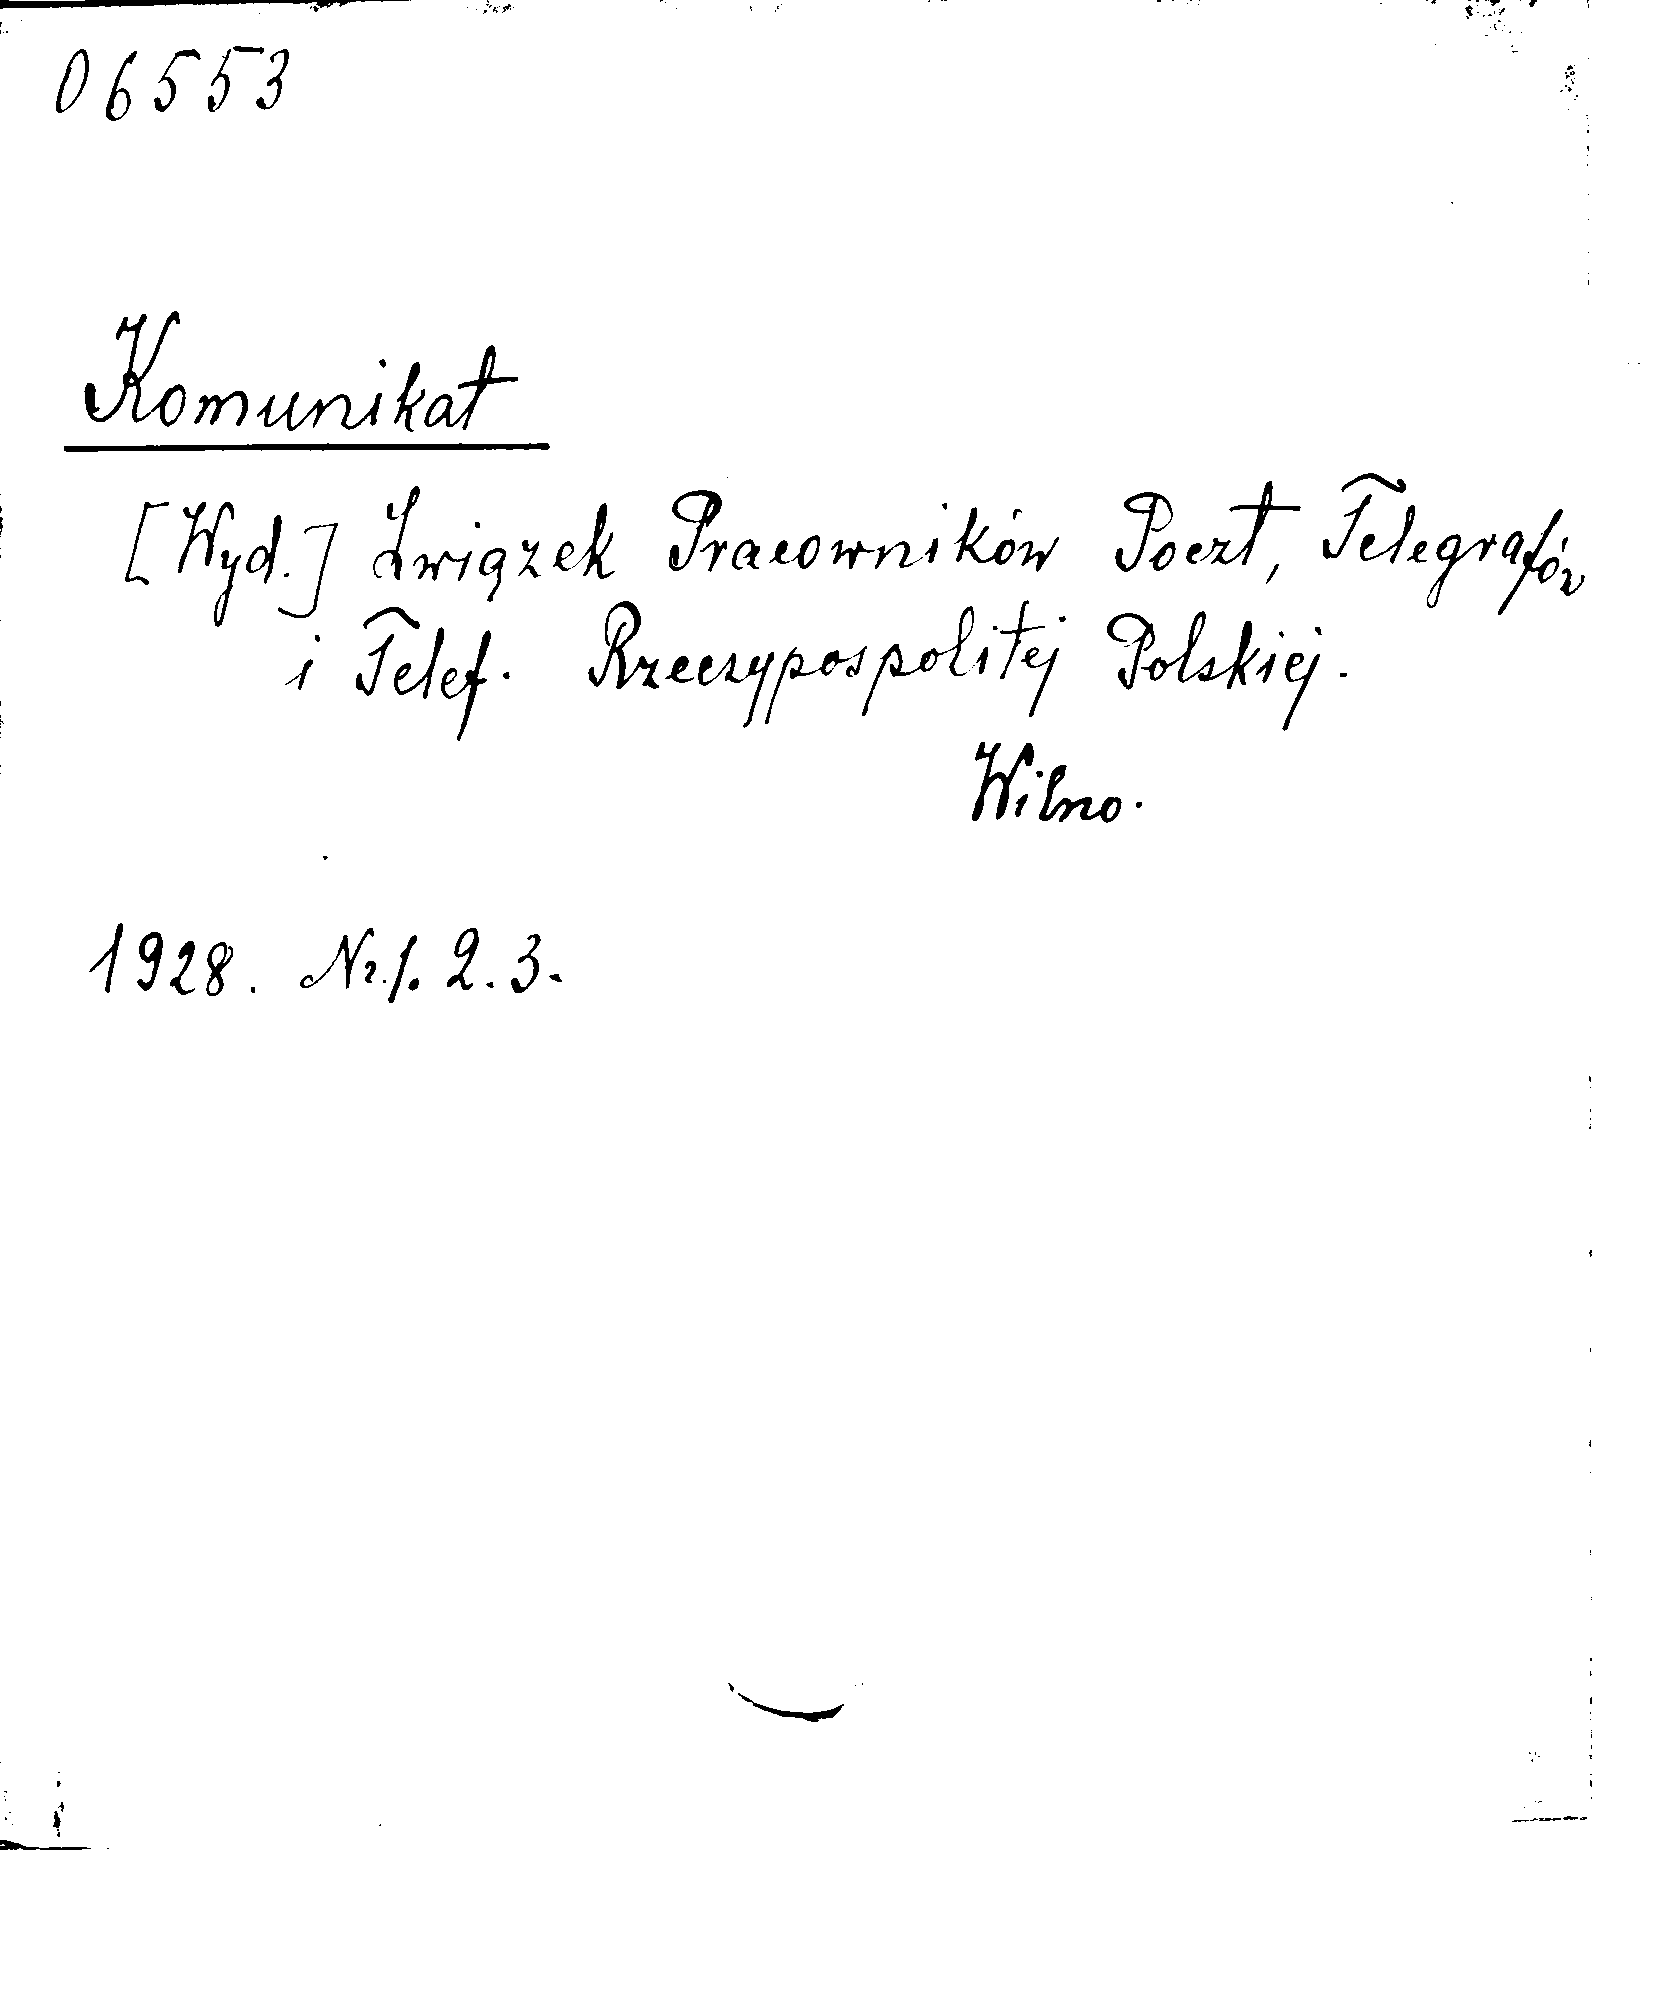 06553
Komunikat
[Wyd.] Związek Pracowników Poczt, Telegrafów
i Telef. Rzeczypospolitej Polskiej.
Wilno.
1928. Nr. 1. 2. 3.